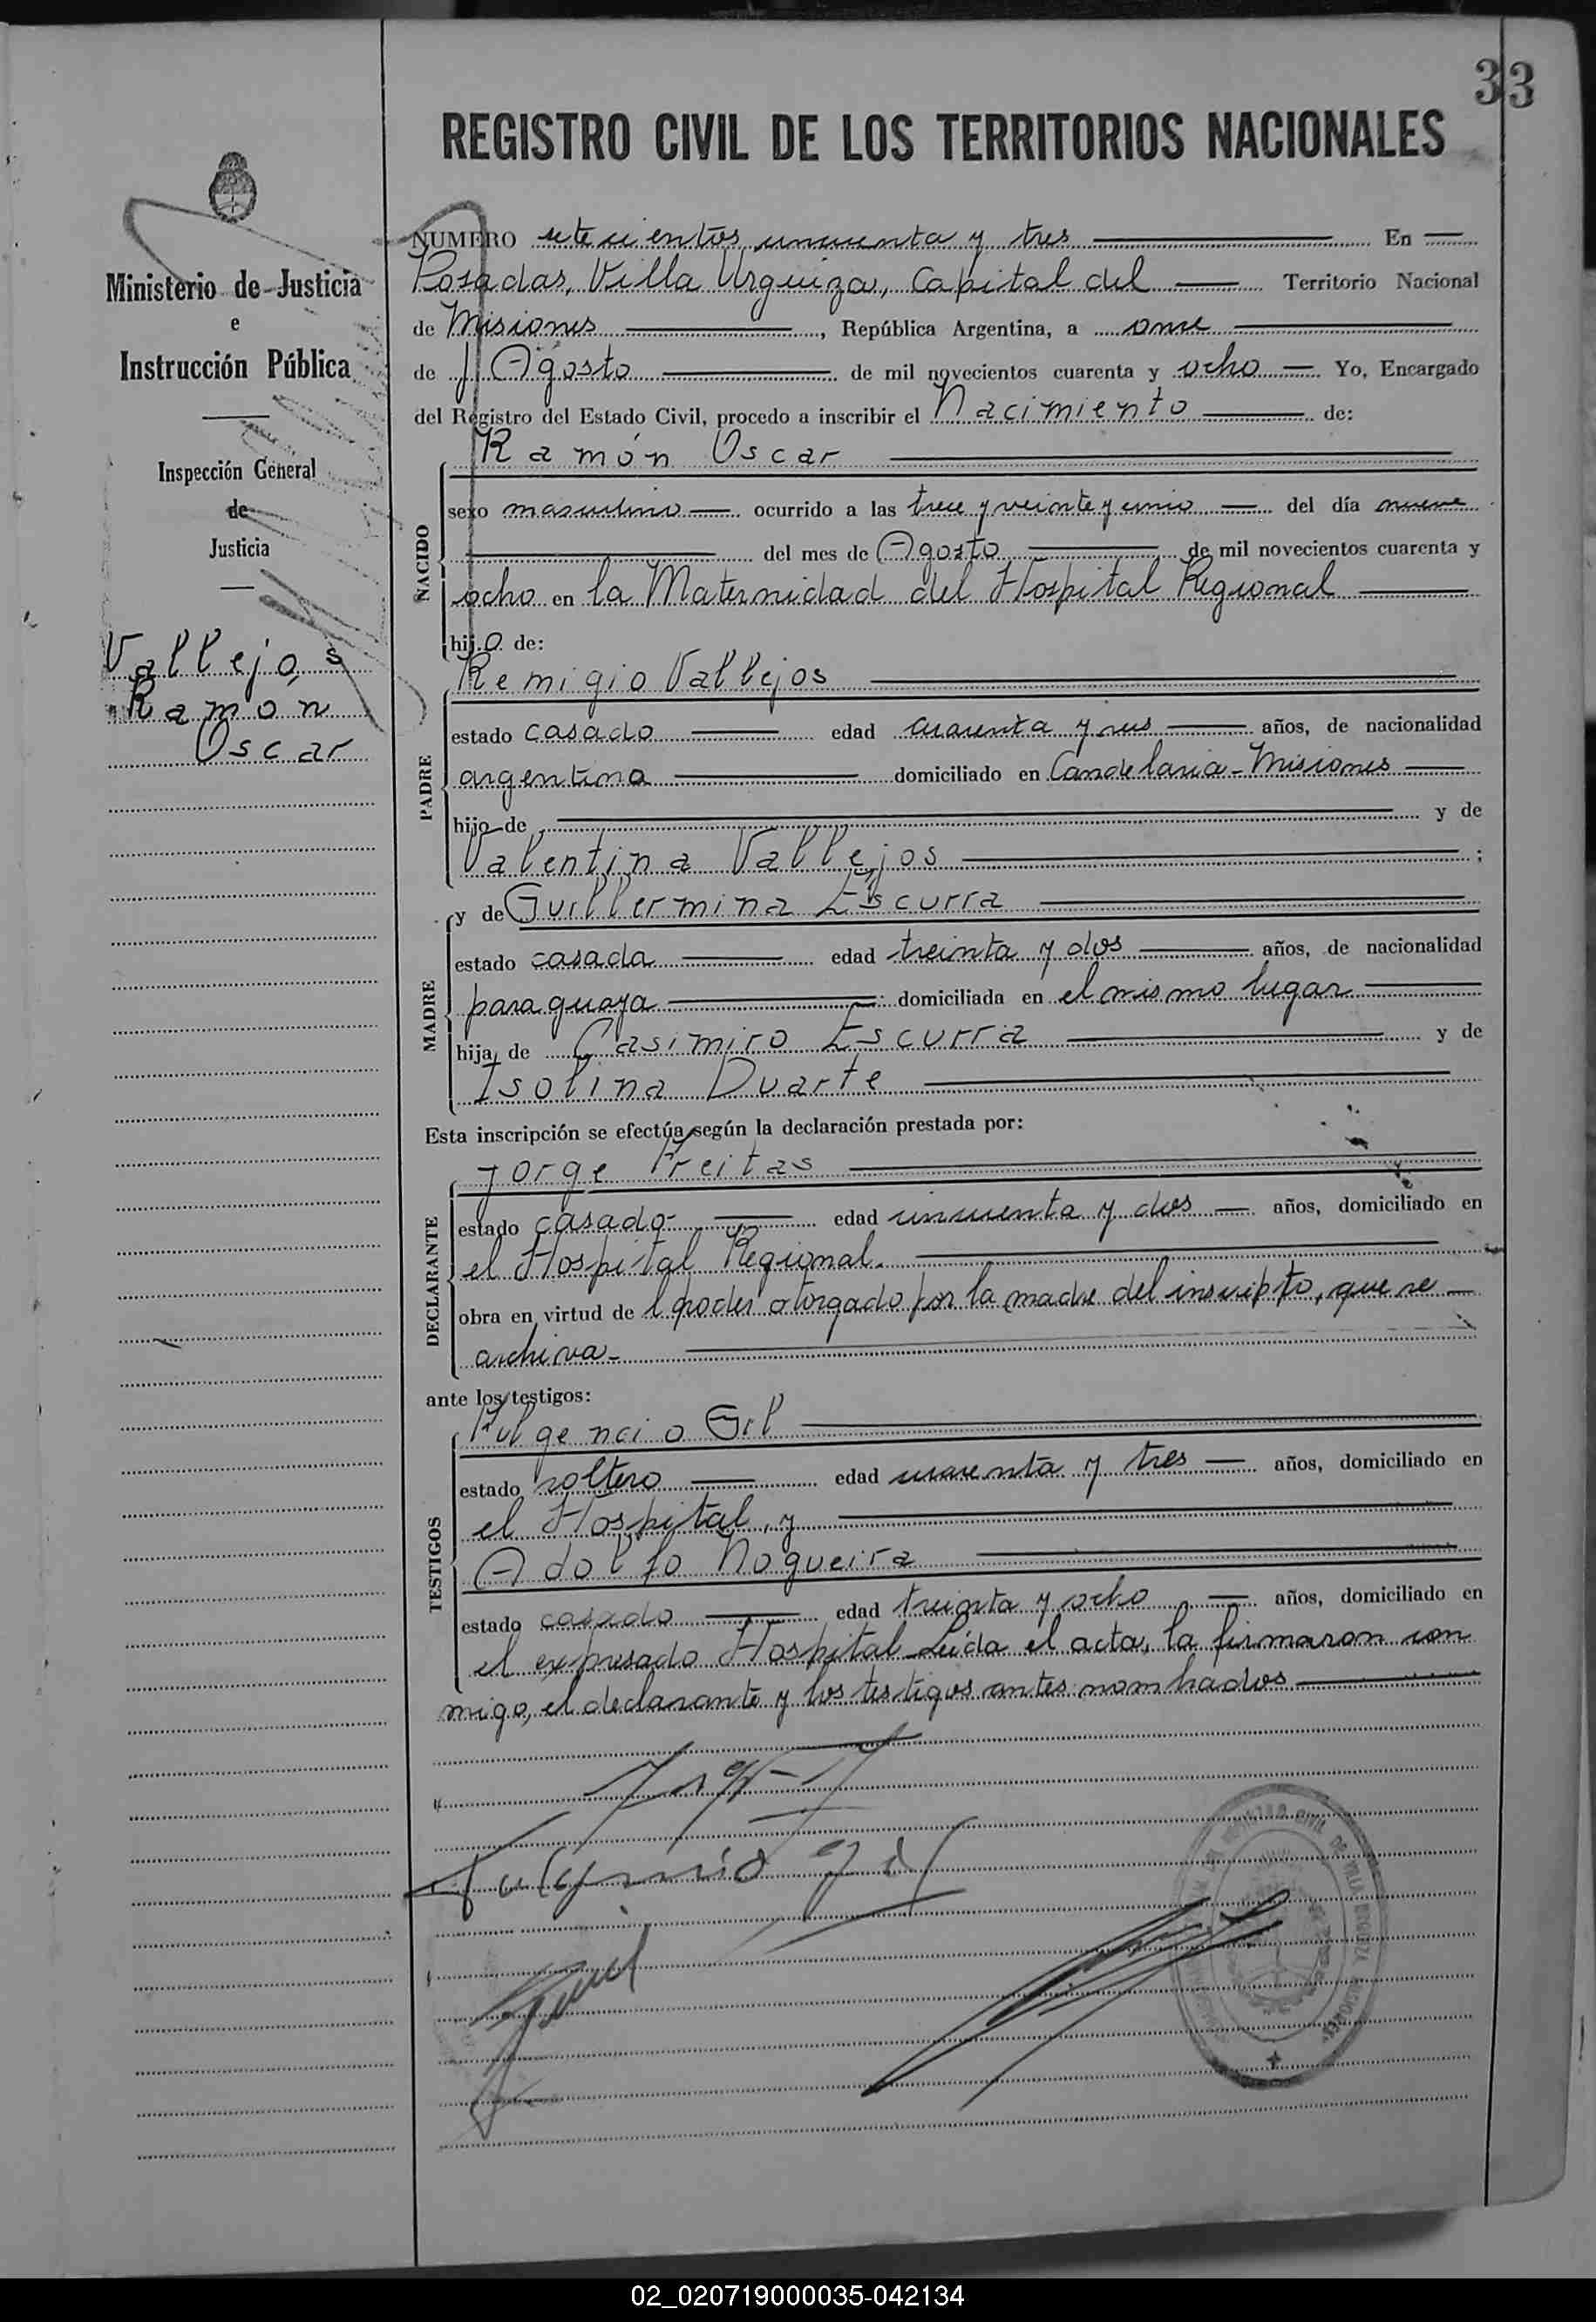 33
REGISTRO CIVIL DE LOS TERRITORIOS NACIONALES
Ministerio de Justicia
e
Instrucción Pública
Inspección General
de
Justicia
Vallejos
Ramón
Oscar
NUMERO setecientos cincuenta y tres En
Posadas, Villa Urquiza, Capital del Territorio Nacional
de Misiones, República Argentina, a once
de Agosto de mil novecientos cuarenta y ocho Yo, Encargado
del Registro del Estado Civil, procedo a inscribir el Nacimiento de:
Ramón Oscar
NACIDO
sexo masculino ocurrido a las trece y veinte y cinco del día nueve
del mes de Agosto de mil novecientos cuarenta y
ocho en la Maternidad del Hospital Regional
hijo de:
Remigio Vallejos
PADRE
estado casado edad cuarenta y años, de nacionalidad
argentina domiciliado en Candelaria - Misiones
hijo de y de
Valentina Vallejos ;
y de Guillermina Escurra
MADRE
estado casada edad treinta y dos años, de nacionalidad
paraguaya domiciliada en el mismo lugar
hija de Casimiro Escurra y de
Isolina Duarte
Esta inscripción se efectúa según la declaración prestada por:
Jorge Freitas
DECLARANTE
estado casado- edad cincuenta y dos años, domiciliado en
el Hospital Regional.
obra en virtud de l poder otorgado por la madre del inscripto, que se
archiva-
ante los testigos:
Fulgencio Gil
TESTIGOS
estado soltero edad cuarenta y tres años, domiciliado en
el Hospital, y
Adolfo Nogueira
estado casado edad treinta y ocho años, domiciliado en
el expresado Hospital. Leída el acta, la firmaron con
migo, el declarante y los testigos antes nombrados
Fulgencio Gil
02_020719000035-042134